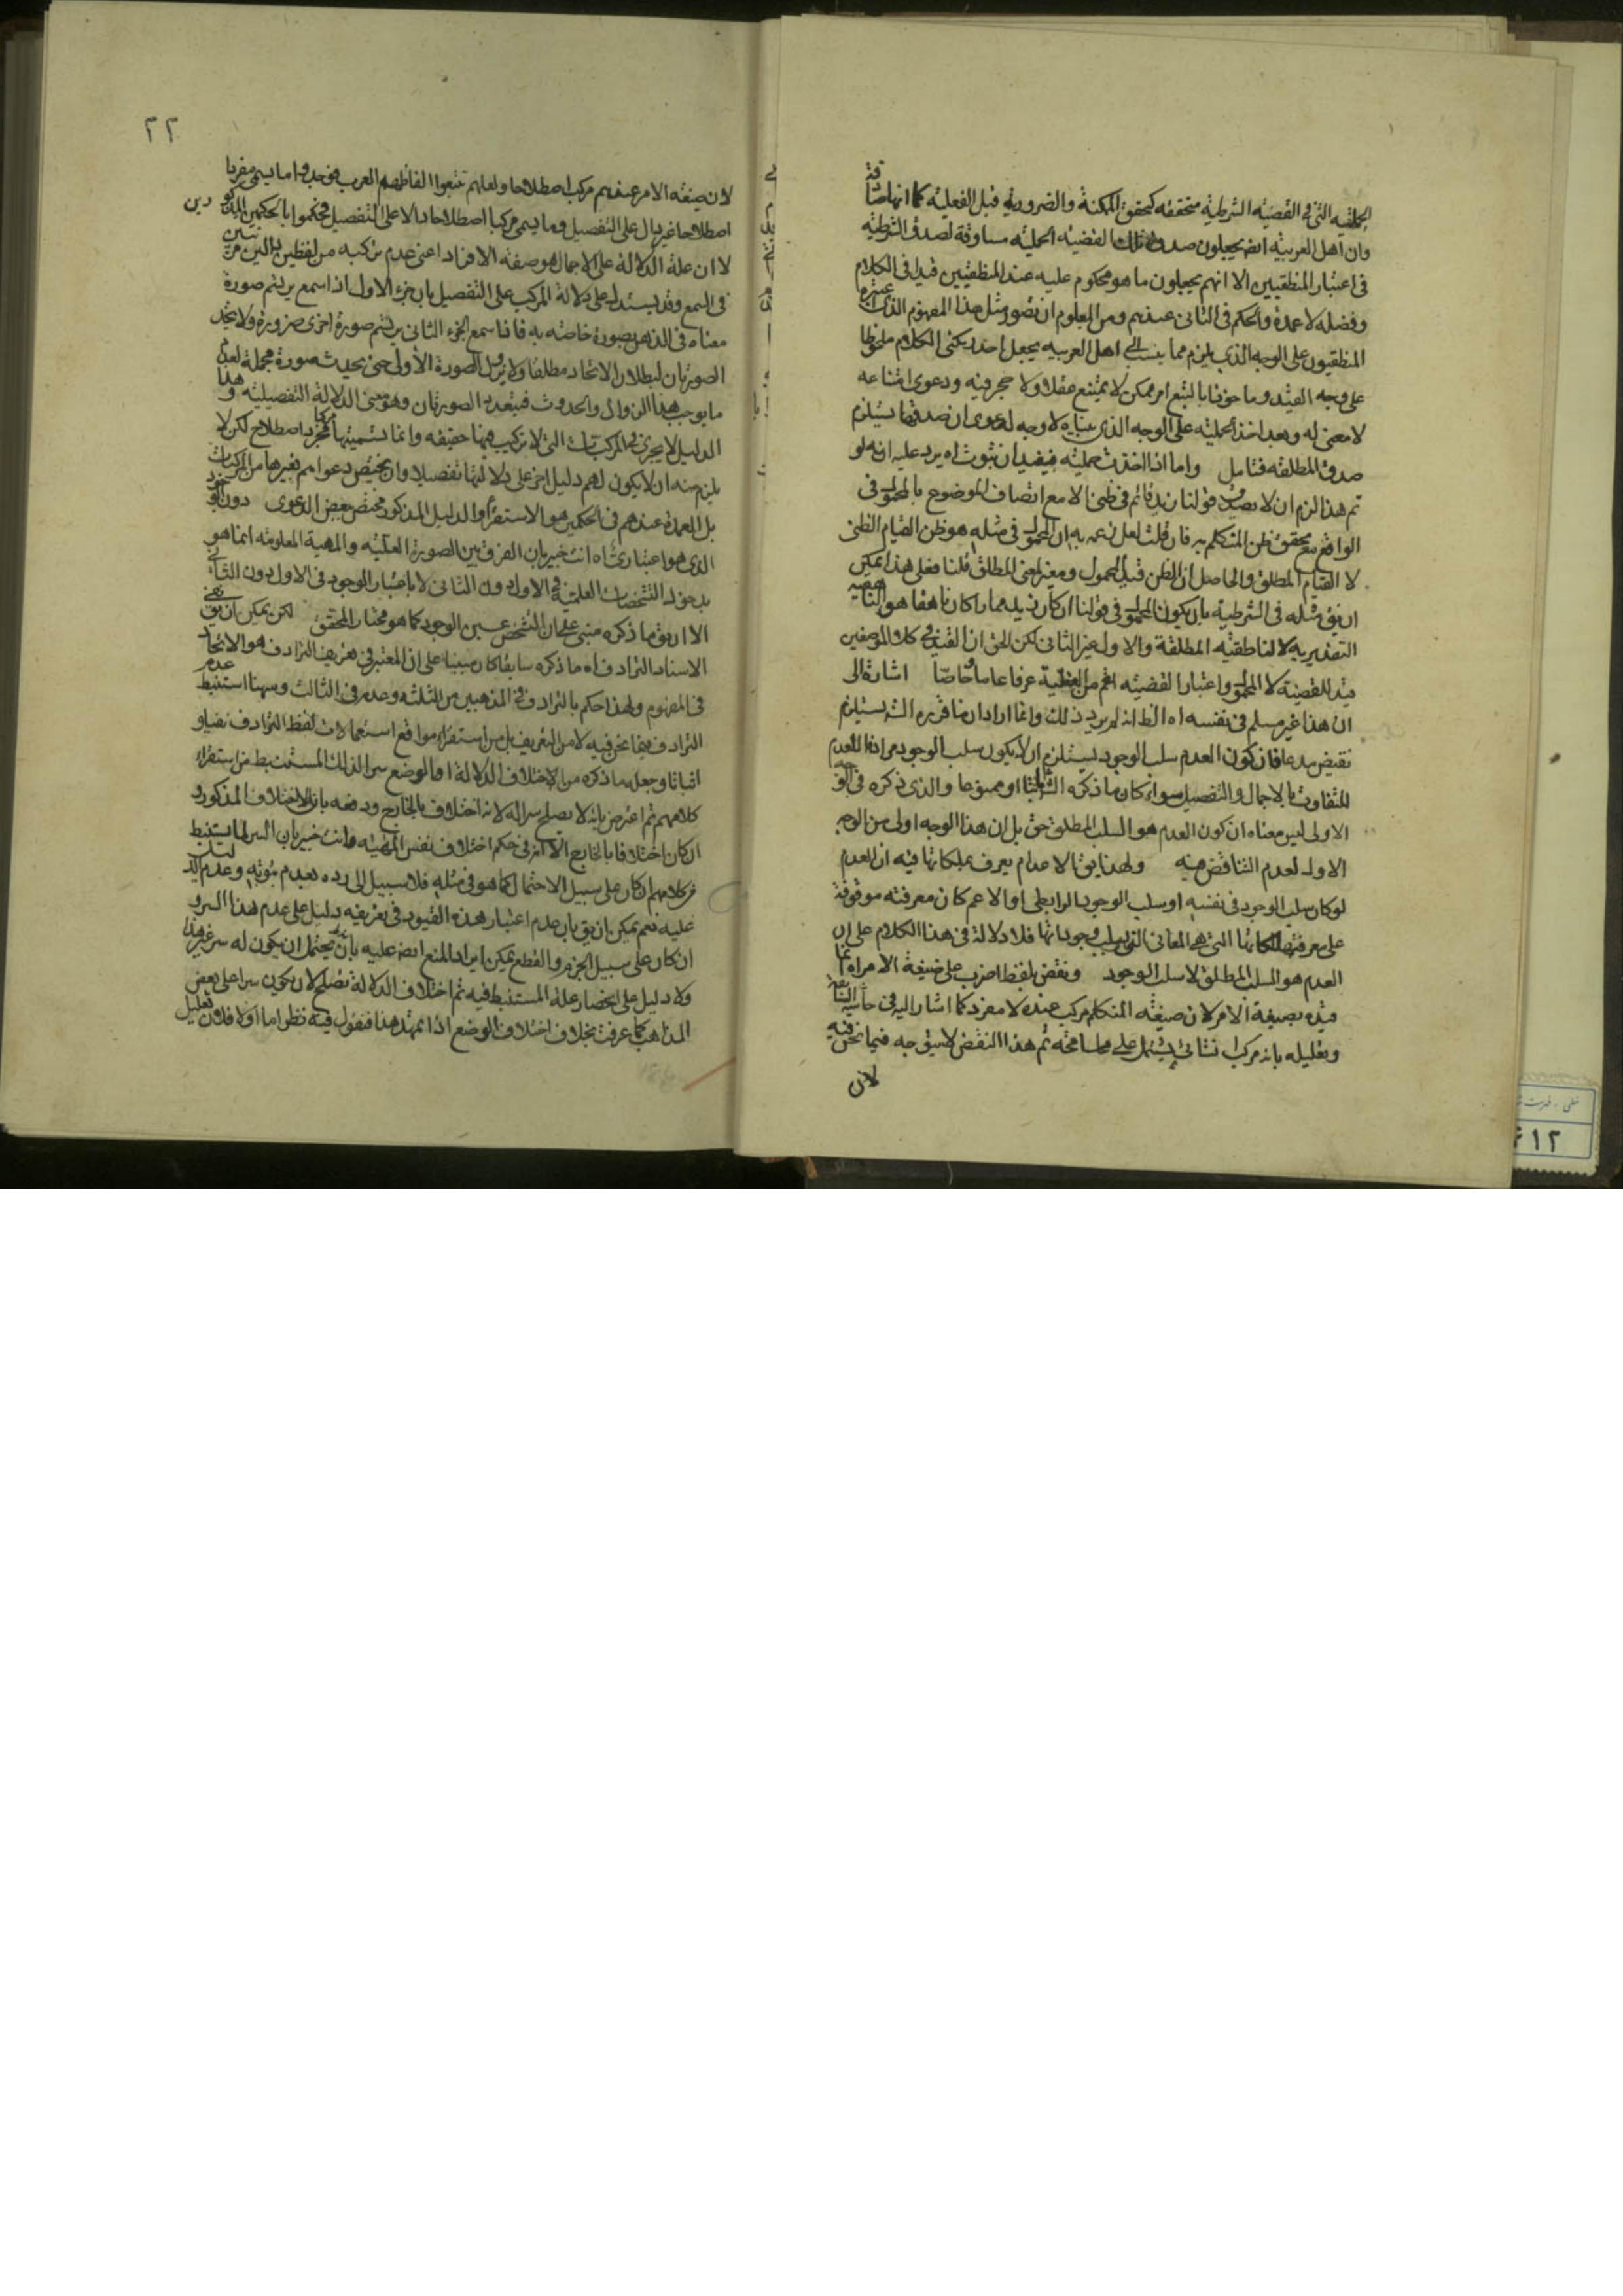 الحملية التى فى القضية الشرطية متحققه كتحقق الممكنة والضرورية قبل الفعلية كما انها صادقة
وان اهل العربية ايضا يجعلون صدق تلك القضية الحملية مساوقة لصدق الشرطية
فى اعتبار المنطقيين الا انهم يجعلون ما هو محكوم عليه عند المنطقيين قيدا فى الكلام
وفضله لا عمدة والحكم فى الثانى عندهم ومن المعلوم ان تصور مثل هذا المفهوم الذى اعتبره
المنطقيون على الوجه الذى يلزم مما ينسب الى اهل العربيه بجعل احد ركنى الكلام ملحوظا
على وجه القيد وماخوذا بالتبع امر ممكن لا يمتنع عقلا ولا حجر فيه ودعوى امتناعه
لا معنى له وبعد اخذ الحملية على الوجه الذى بيناه لا وجه لدعوى ان صدقها يستلزم
صدق المطلقه فتامل واما اذا اخذت حملية فيفيد ان ثبوت اه يرد عليه انه لو
تم هذا لزم ان لا يصدق قولنا زيد قائم فى ظنى الا مع اتصاف الموضوع بالمحمول فى
الواقع مع تحقق ظن المتكلم به فان قلت لعل زعمه ان المحمول فى مثله هو ظن القيام الظنى
لا القيام المطلق والحاصل ان الظن قيد المحمول ومغير لمعنى المطلق قلنا فعلى هذا يمكن
ان يق مثله فى الشرطية بان يكون المحمول فى قولنا ان كان زيد حمارا كان ناهقا هو الناهقيه
التقديريه لا الناطقيه المطلقة والاول غير الثانى لكن الحق ان القيد فى كلا الموضعين
قيد للقضية لا المحمول واعتبار القضيه اعم من الفعلية عرفا عاما وخاصا اشارة الى
ان هذا غير مسلم فى نفسه اه الظ انه لم يرد ذلك وانما اراد ان ما قرره الش يستلزم
نقيض مدعاه فان كون العدم سلب الوجود يستلزم ان لا يكون سلب الوجود مرادفا للعدم
للتفاوت بالاجمال والتفصيل سواء كان ما ذكره الش ثابتا او ممنوعا والذى ذكره فى توجيه
الاولى ليس معناه ان كون العدم هو السلب المطلق حق بل ان هذا الوجه اولى من الوجه
الاول لعدم التناقض فيه ولهذا يق الاعدام يعرف بملكاتها فيه ان العدم
لو كان سلب الوجود فى نفسه او سلب الوجود الرابطى او الاعم كان معرفته موقوفة
على معرفة ملكاتها التى هى المعانى التى يسلب وجوداتها فلا دلالة فى هذا الكلام على ان
العدم هو السلب المطلق لا سلب الوجود ونقض بلفظ اضرب على صيغة الامر اه انما
قيده بصيغة الامر لان صيغه المتكلم مركب عنده لا مفرد كما اشار اليه فى حاشيه السابقه
وتعليله بانه مركب انشائى يشتمل على مسامحه ثم هذا النقض لا يتوجه فيما نحن فيه
لان
٢٢
لان صيغه الامر عندهم مركب اصطلاحا ولعلهم تتبعوا الفاظ العرب فوجدوا ما يسمى مفردا
اصطلاحا غير دال على التفصيل وما يسمى مركبا اصطلاحا دالا على التفصيل فحكموا بالحكمين المذكورين
لا ان علة الدلالة على الاجمال هو صفه الافراد اعنى عدم تركبه من لفظين دالين مرتبين
فى السمع وقد يستدل على دلالة المركب على التفصيل بان جزء الاول اذا سمع يرتسم صورة
معناه فى الذهن بصورة خاصه به فاذا سمع الجزء الثانى يرتسم صورة اخرى ضرورة ولا يتحد
الصورتان لبطلان الاتحاد مطلقا ولا يزول الصورة الاولى حتى يحدث صورة مجملة لعدم
ما يوجب هذا الزوال والحدوث فيتعدد الصورتان وهو معنى الدلالة التفصيلية وهذا
الدليل لا يجرى فى المركبات التى لا تركيب فيها حقيقه وانما تسميتها مركبا مجرد اصطلاح لكن لا
يلزم منه ان لا يكون لهم دليل اخر على دلالتها تفصيلا وان يختص دعواهم بغيرها من المركبات
بل العمدة عندهم فى الحكمين هو الاستقراء والدليل المذكور مختص ببعض الدعوى دون الوجود
الذى هو اعتبارى اه انت خبير بان الفرق بين الصورة العلمية والمهية المعلومه انما هو
بدخول التشخصات العلمية فى الاول دون الثانى لا باعتبار الوجود فى الاول دون الثانى
الا ان يق ما ذكره مبنى على ان التشخص عين الوجود كما هو مختار المحقق لكن يمكن ان يق نفى
الاسناد الترادف اه ما ذكره سابقا كان مبنيا على ان المعتبر فى تعريف الترادف هو الاتحاد
فى المفهوم ولهذا حكم بالترادف فى المذهبين من الثلثه وعدمه فى الثالث وههنا استنبط عدم
الترادف فيما نحن فيه لا من التعريف بل من استقراء مواقع استعمالات لفظ الترادف نفيا و
اثباتا وجعل ما ذكره من الاختلاف الدلالة او الوضع سرا لذلك المستنبط من استقراء
كلامهم ثم اعترض بانه لا يصلح سرا له لانه اختلاف بالخارج ودفعه بان الاختلاف المذكور و
ان كان اختلافا بالخارج الا انه فى حكم اختلاف نفس المهية وانت خبير بان السر لما يستنبط
من كلامهم ان كان على سبيل الاحتمال كما هو فى مثله فلا سبيل الى رده بعدم ثبوته وعدم الدليل
عليه نعم يمكن ان يق بان عدم اعتبار هذه القيود فى تعريفه دليل على عدم هذا السر و
ان كان على سبيل الجزم والقطع يمكن ايراد المنع ايضا عليه بانه يحتمل ان يكون له سر غير هذا
ولا دليل على انحصار علة المستنبط فيه ثم اختلاف الدلالة تصلح لان يكون سرا على بعض
المذاهب كما عرفت بخلاف اختلاف الوضع اذا تمهد هذا فنقول فيه نظر اما اولا فلان تعليل